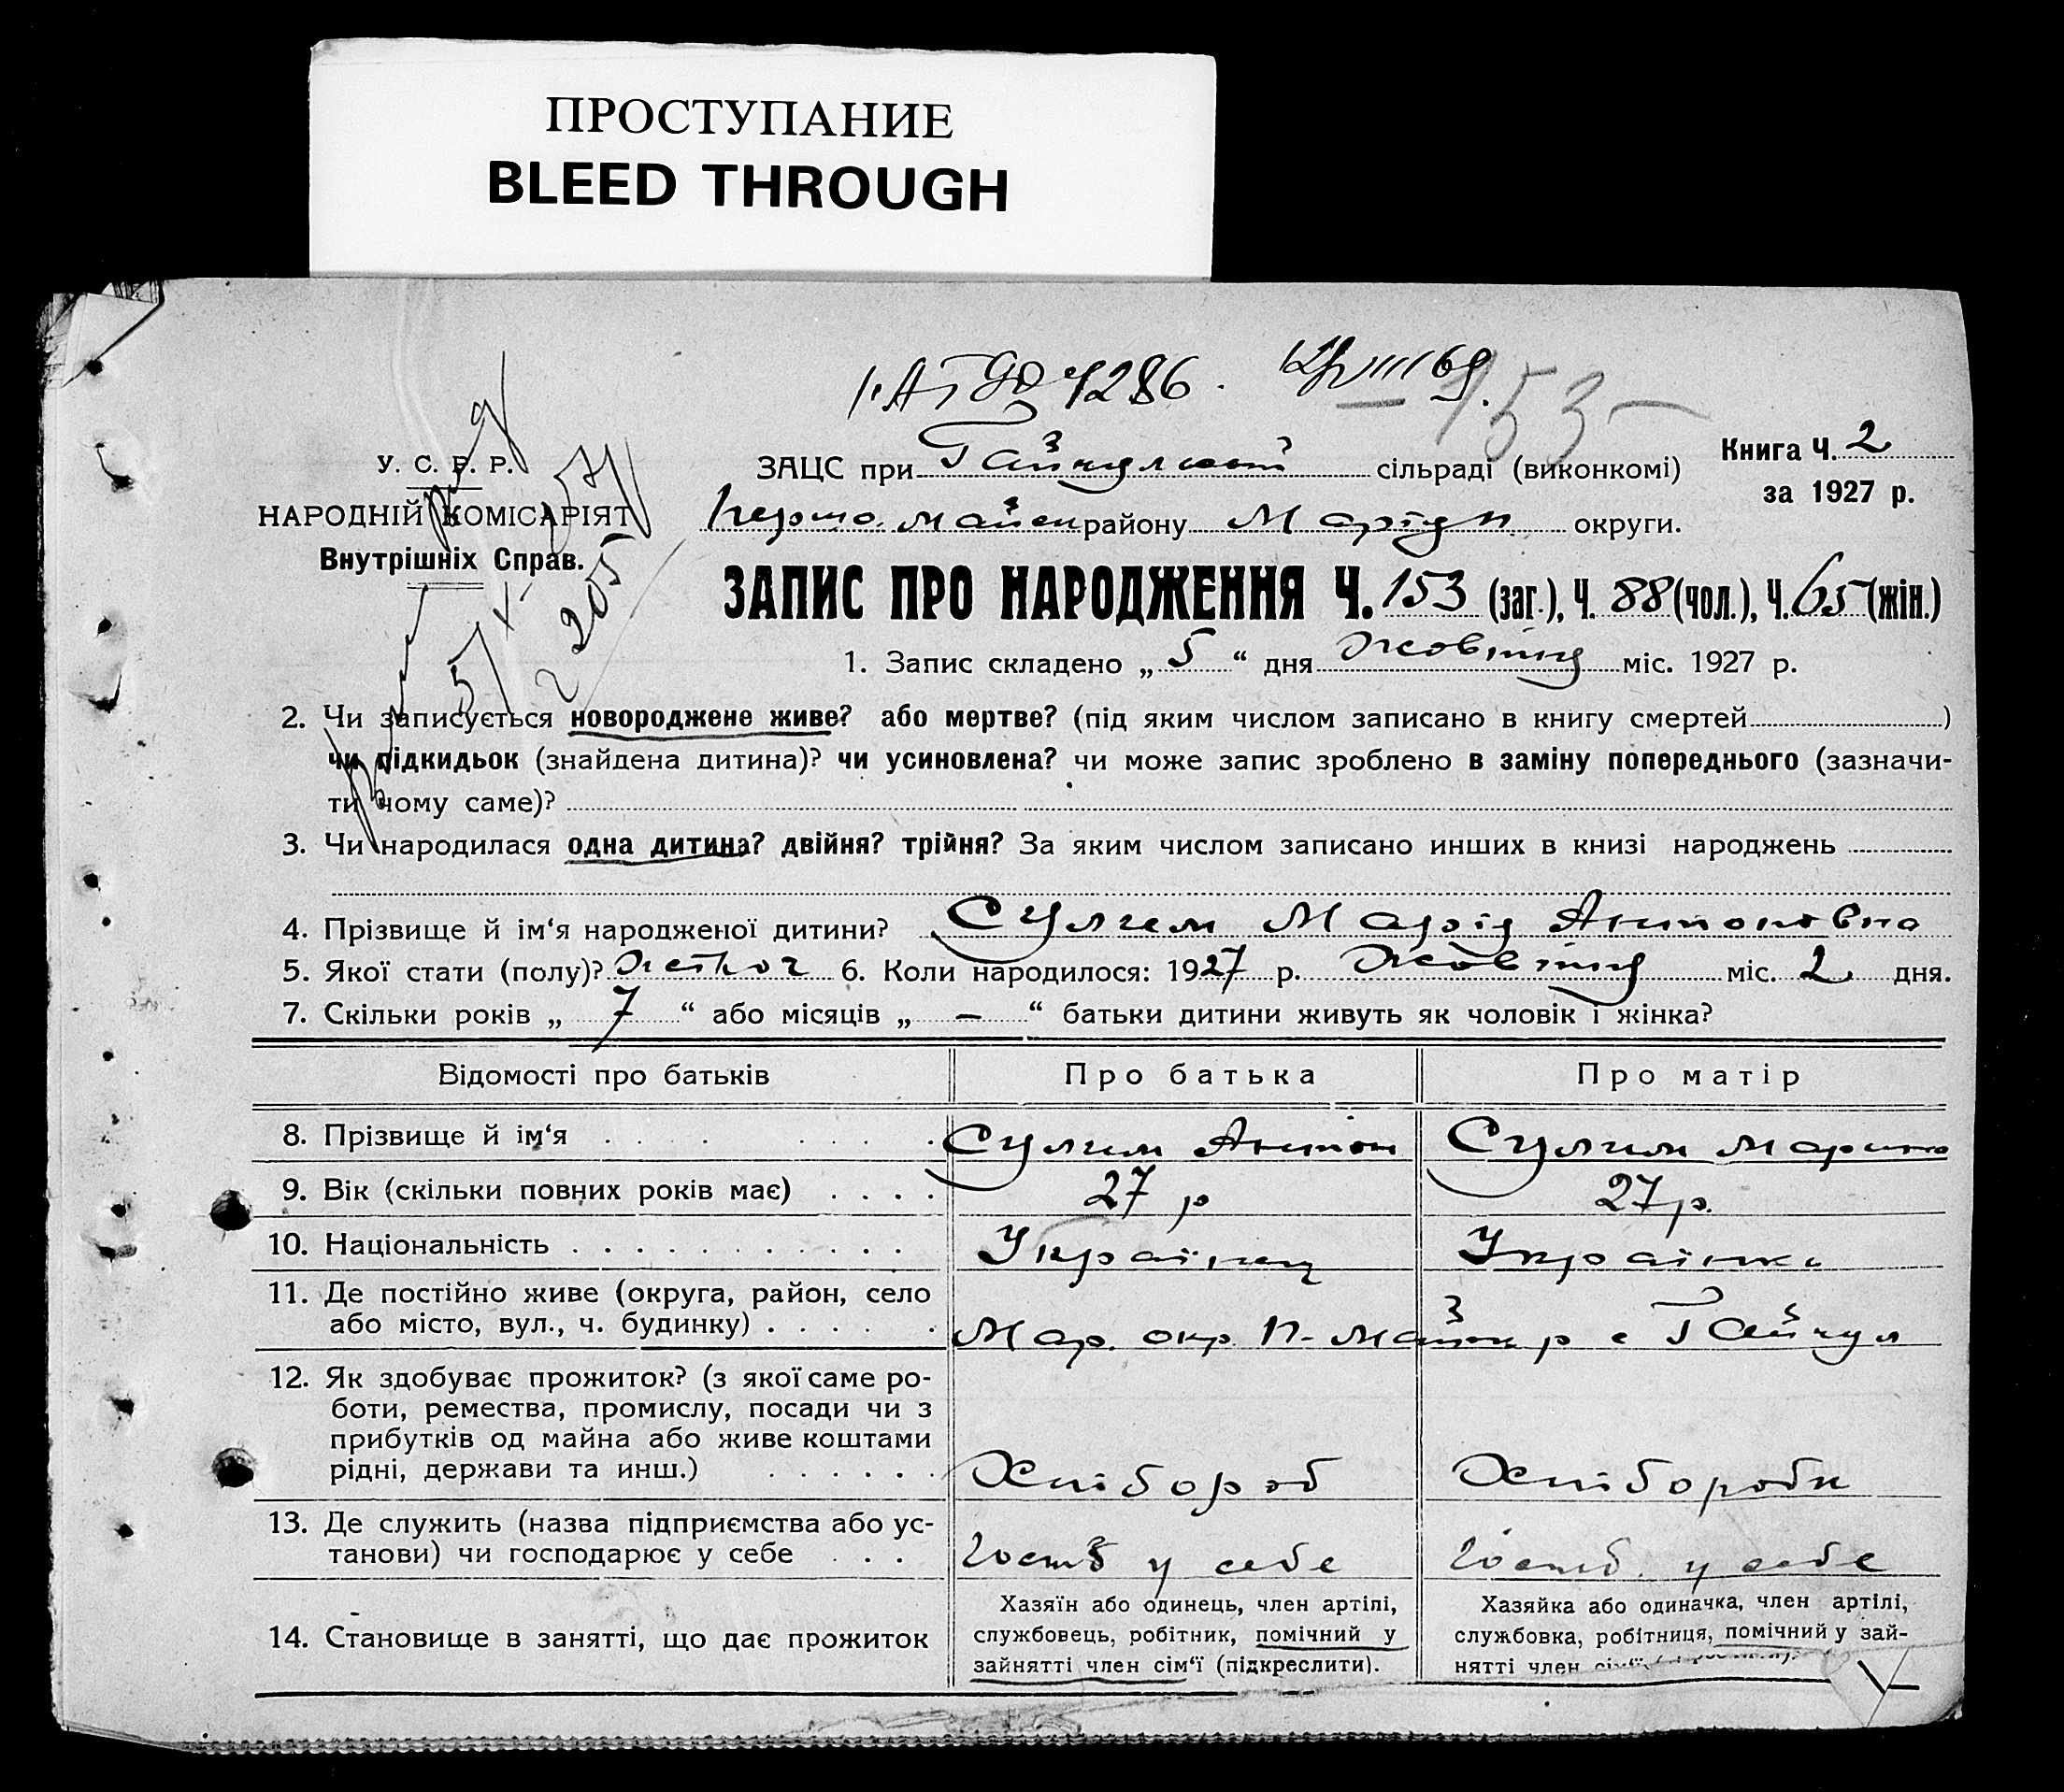 ПРОСТУПАНИЕ
BLEED THROUGH
1286.
153
У. С. Р. Р.
НАРОДНІЙ КОМІСАРІЯТ
Внутрішніх Справ.
2205
ЗАЦС при Гайчульській сільраді (виконкомі)
Книга Ч. 2
за 1927 р.
Першо. майськ району Маріуп. округи.
ЗАПИС ПРО НАРОДЖЕННЯ Ч. 153 (заг.), Ч. 88 (чол.), Ч. 65 (жін.)
1. Запис складено „ 5 “ дня Жовтня міс. 1927 р.
2. Чи записується новороджене живе? або мертве? (під яким числом записано в книгу смертей )
чи підкидьок (знайдена дитина)? чи усиновлена? чи може запис зроблено в заміну попереднього (зазначи-
ти чому саме)?
3. Чи народилася одна дитина? двійня? трійня? За яким числом записано инших в книзі народжень
4. Прізвище й ім‘я народженої дитини? Сулим Марія Антоновна
5. Якої стати (полу)? жіноч 6. Коли народилося: 1927 р. Жовтня міс. 2 дня.
7. Скільки років „ 7 “ або місяців „ — “ батьки дитини живуть як чоловік і жінка?
Відомості про батьків
Про батька
Про матір
8. Прізвище й ім‘я
Сулим Антон
Сулим Марина
9. Вік (скільки повних років має)
27 р
27 р.
10. Національність
Українец
Українка
11. Де постійно живе (округа, район, село
або місто, вул., ч. будинку)
Мар. окр. П-Майськ р с Гайчул
12. Як здобуває прожиток? (з якої саме ро-
боти, ремества, промислу, посади чи з
прибутків од майна або живе коштами
рідні, держави та инш.)
Хлібороб
Хлібороби
13. Де служить (назва підприємства або ус-
танови) чи господарює у себе
у себе
у себе
14. Становище в занятті, що дає прожиток
Хазяїн або одинець, член артілі,
службовець, робітник, помічний у
зайнятті член сім‘ї (підкреслити).
Хазяйка або одиначка, член артілі,
службовка, робітниця, помічний у зай-
нятті член сім‘ї